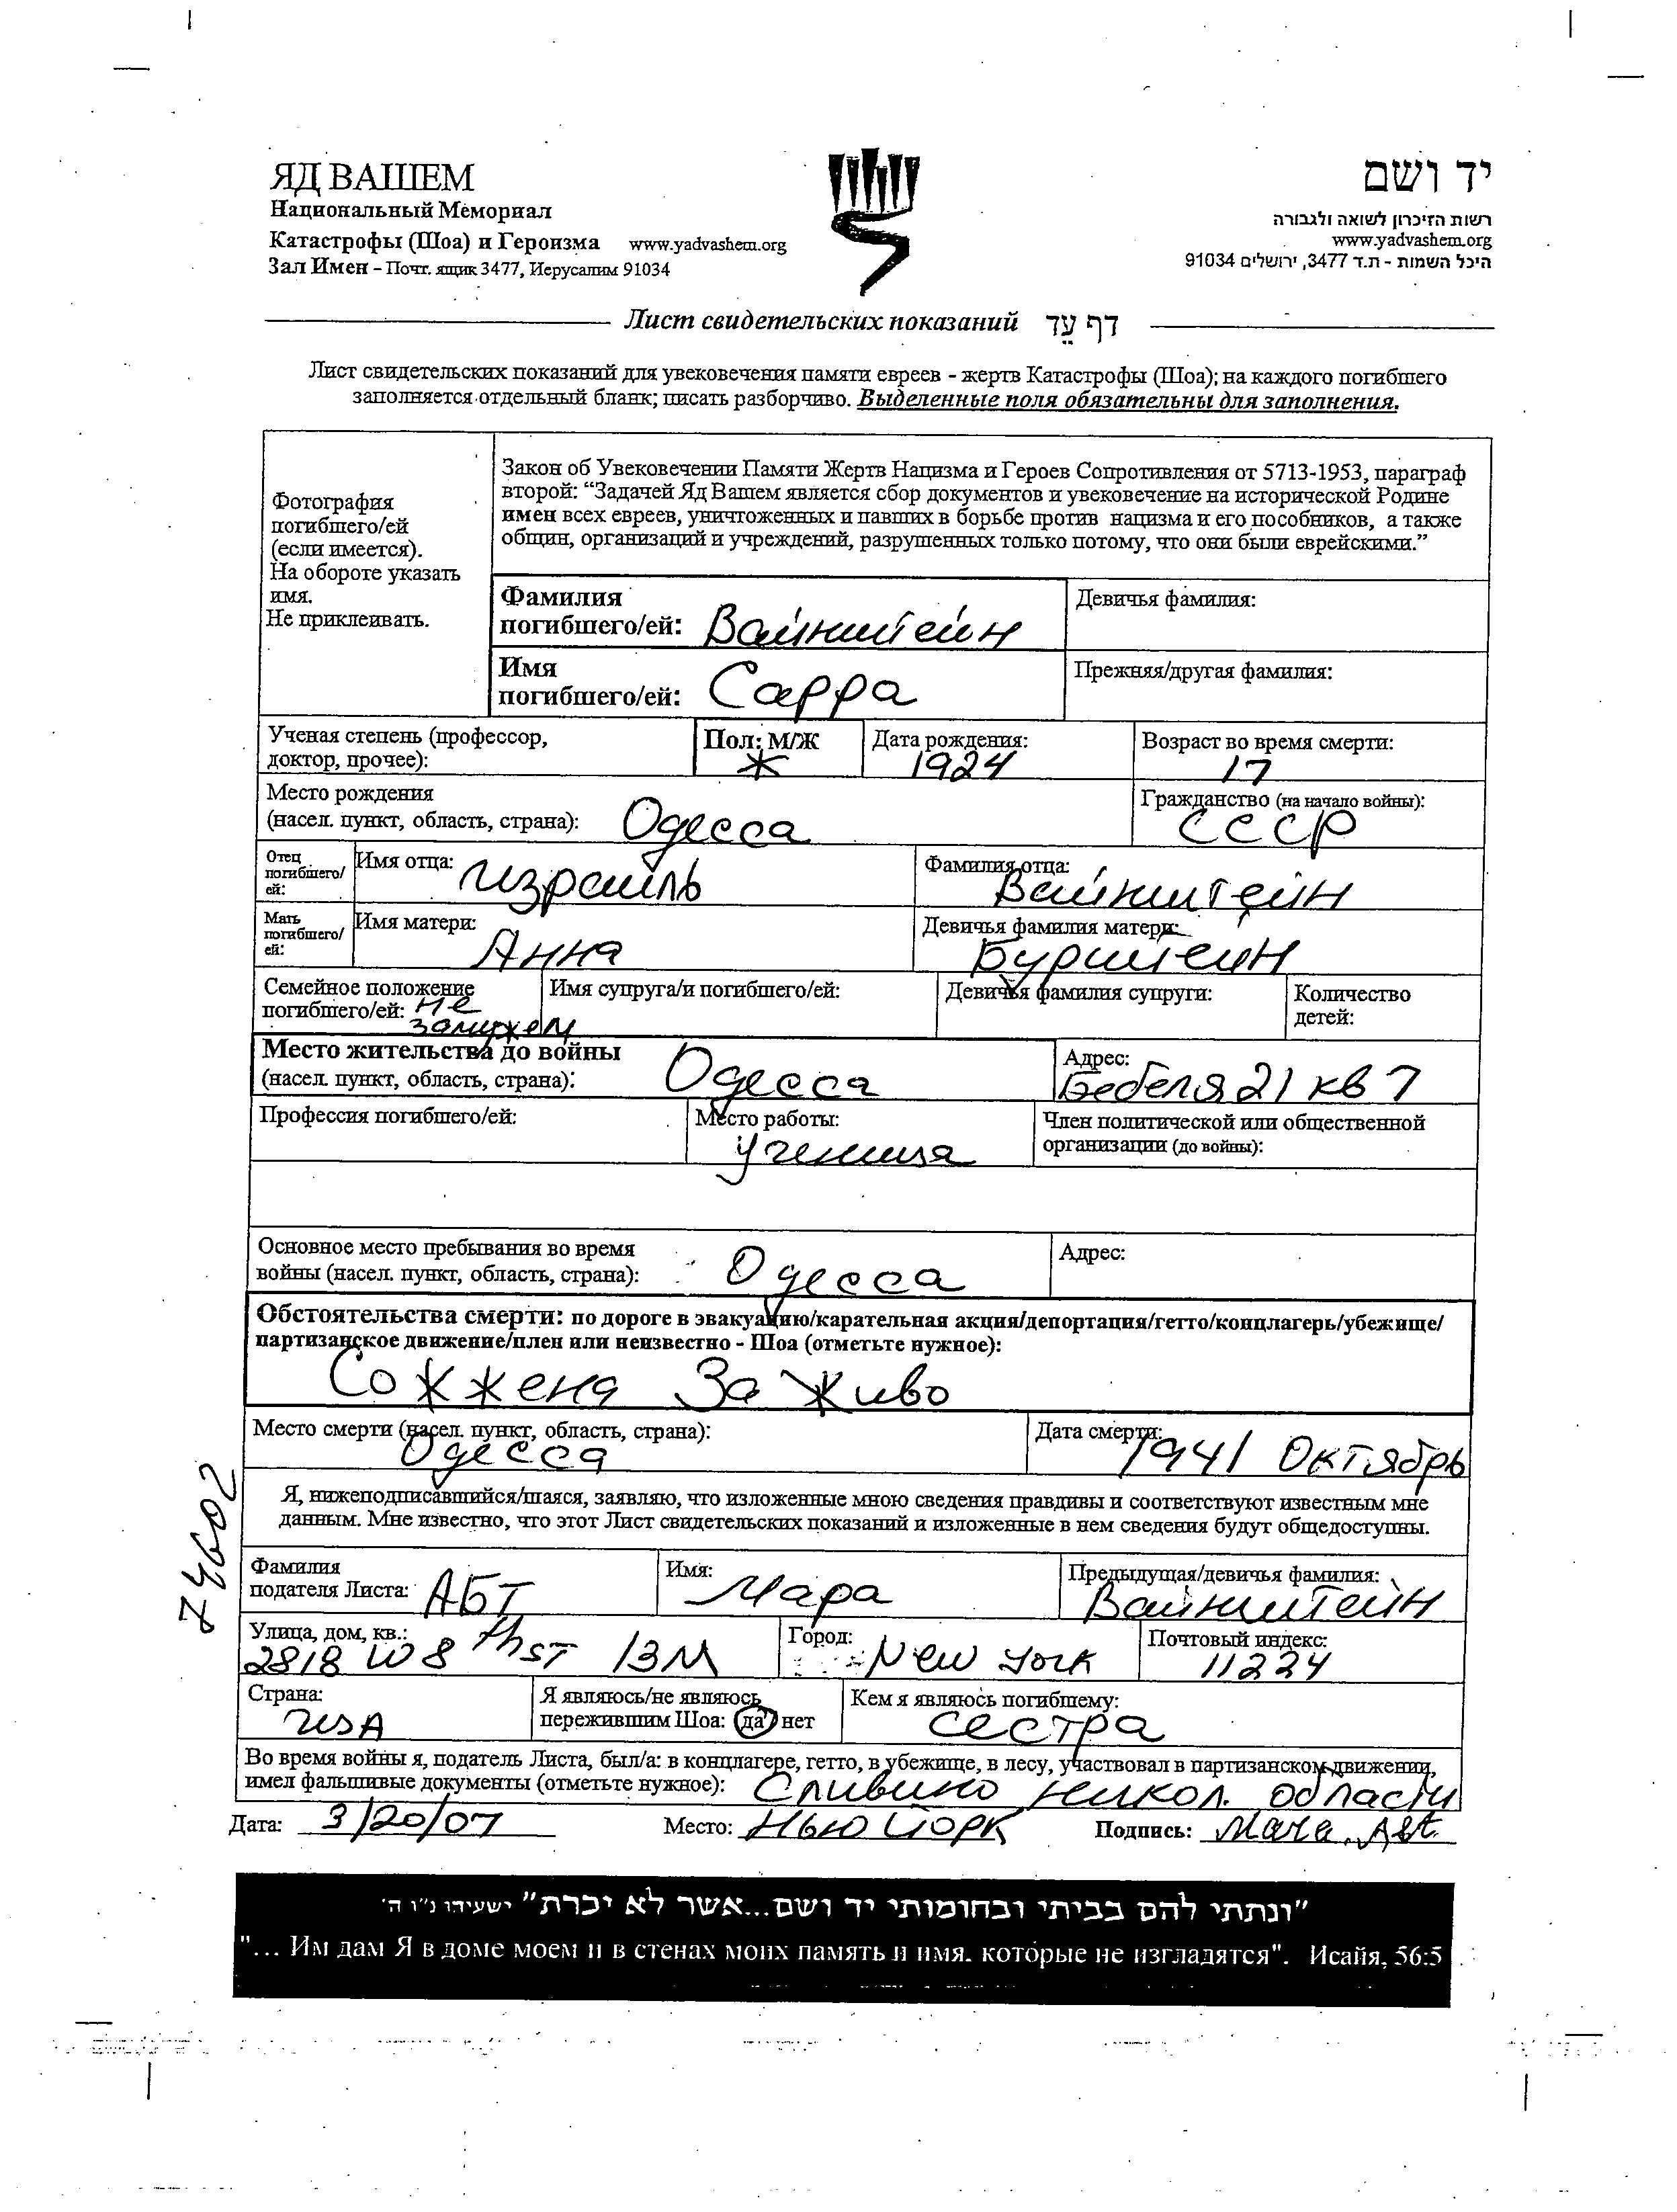 ЯД ВАШЕМ
Национальный Мемориал
Катастрофы (Шоа) и Героизма www.yadvashem.org
Зал Имен - Почт. ящик 3477, Иерусалим 91034
יד ושם
רשות הזיכרון לשואה ולגבורה
www.yadvashem.org
היכל השמות - ת.ד 3477, ירושלים 91034
Лист свидетельских показаний דף עֵד
Лист свидетельских показаний для увековечения памяти евреев - жертв Катастрофы (Шоа); на каждого погибшего
заполняется отдельный бланк; писать разборчиво. Выделенные поля обязательны для заполнения.
Фотография
погибшего/ей
(если имеется).
На обороте указать
имя.
Не приклеивать.
Закон об Увековечении Памяти Жертв Нацизма и Героев Сопротивления от 5713-1953, параграф
второй: “Задачей Яд Вашем является сбор документов и увековечение на исторической Родине
имен всех евреев, уничтоженных и павших в борьбе против нацизма и его пособников, а также
общин, организаций и учреждений, разрушенных только потому, что они были еврейскими.”
Фамилия
погибшего/ей: Вайнштейн
Девичья фамилия:
Имя
погибшего/ей: Сарра
Прежняя/другая фамилия:
Ученая степень (профессор,
доктор, прочее):
Пол: М/Ж
Ж
Дата рождения:
1924
Возраст во время смерти:
17
Место рождения
(насел. пункт, область, страна): Одесса
Гражданство (на начало войны):
СССР
Отец
погибшего/
ей:
Имя отца: Израиль
Фамилия отца:
Вайнштейн
Мать
погибшего/
ей:
Имя матери:
Анна
Девичья фамилия матери:
Бурштейн
Семейное положение
погибшего/ей: не
замужем
Имя супруга/и погибшего/ей:
Девичья фамилия супруги:
Количество
детей:
Место жительства до войны
(насел. пункт, область, страна): Одесса
Адрес:
Бебеля 21 кв 7
Профессия погибшего/ей:
Место работы:
ученица
Член политической или общественной
организации (до войны):
Основное место пребывания во время
войны (насел. пункт, область, страна): Одесса
Адрес:
Обстоятельства смерти: по дороге в эвакуацию/карательная акция/депортация/гетто/концлагерь/убежище/
партизанское движение/плен или неизвестно - Шоа (отметьте нужное):
Сожжена За Живо
Место смерти (насел. пункт, область, страна):
Одесса
Дата смерти:
1941 Октябрь
74602
Я, нижеподписавшийся/шаяся, заявляю, что изложенные мною сведения правдивы и соответствуют известным мне
данным. Мне известно, что этот Лист свидетельских показаний и изложенные в нем сведения будут общедоступны.
Фамилия
подателя Листа: АБТ
Имя:
Мара
Предыдущая/девичья фамилия:
Вайнштейн
Улица, дом, кв.:
2818 W 8 thST 13M
Город:
New York
Почтовый индекс:
11224
Страна:
USA
Я являюсь/не являюсь
пережившим Шоа: да нет
Кем я являюсь погибшему:
сестра
Во время войны я, податель Листа, был/а: в концлагере, гетто, в убежище, в лесу, участвовал в партизанском движении,
имел фальшивые документы (отметьте нужное): Сливино никол. области
Дата: 3/20/07
Место: Нью Йорк
Подпись: Mara. Abt.
"ונתתי להם בביתי ובחומותי יד ושם...אשר לא יכרת" ישעיהו נ"ו ה'
"... Им дам Я в доме моем и в стенах моих память и имя. которые не изгладятся". Исайя, 56:5